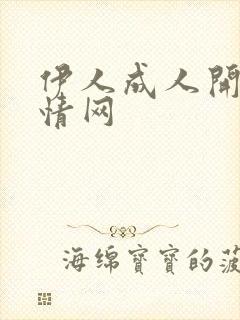 伊人成人開
情网
海绵寶寶的菠